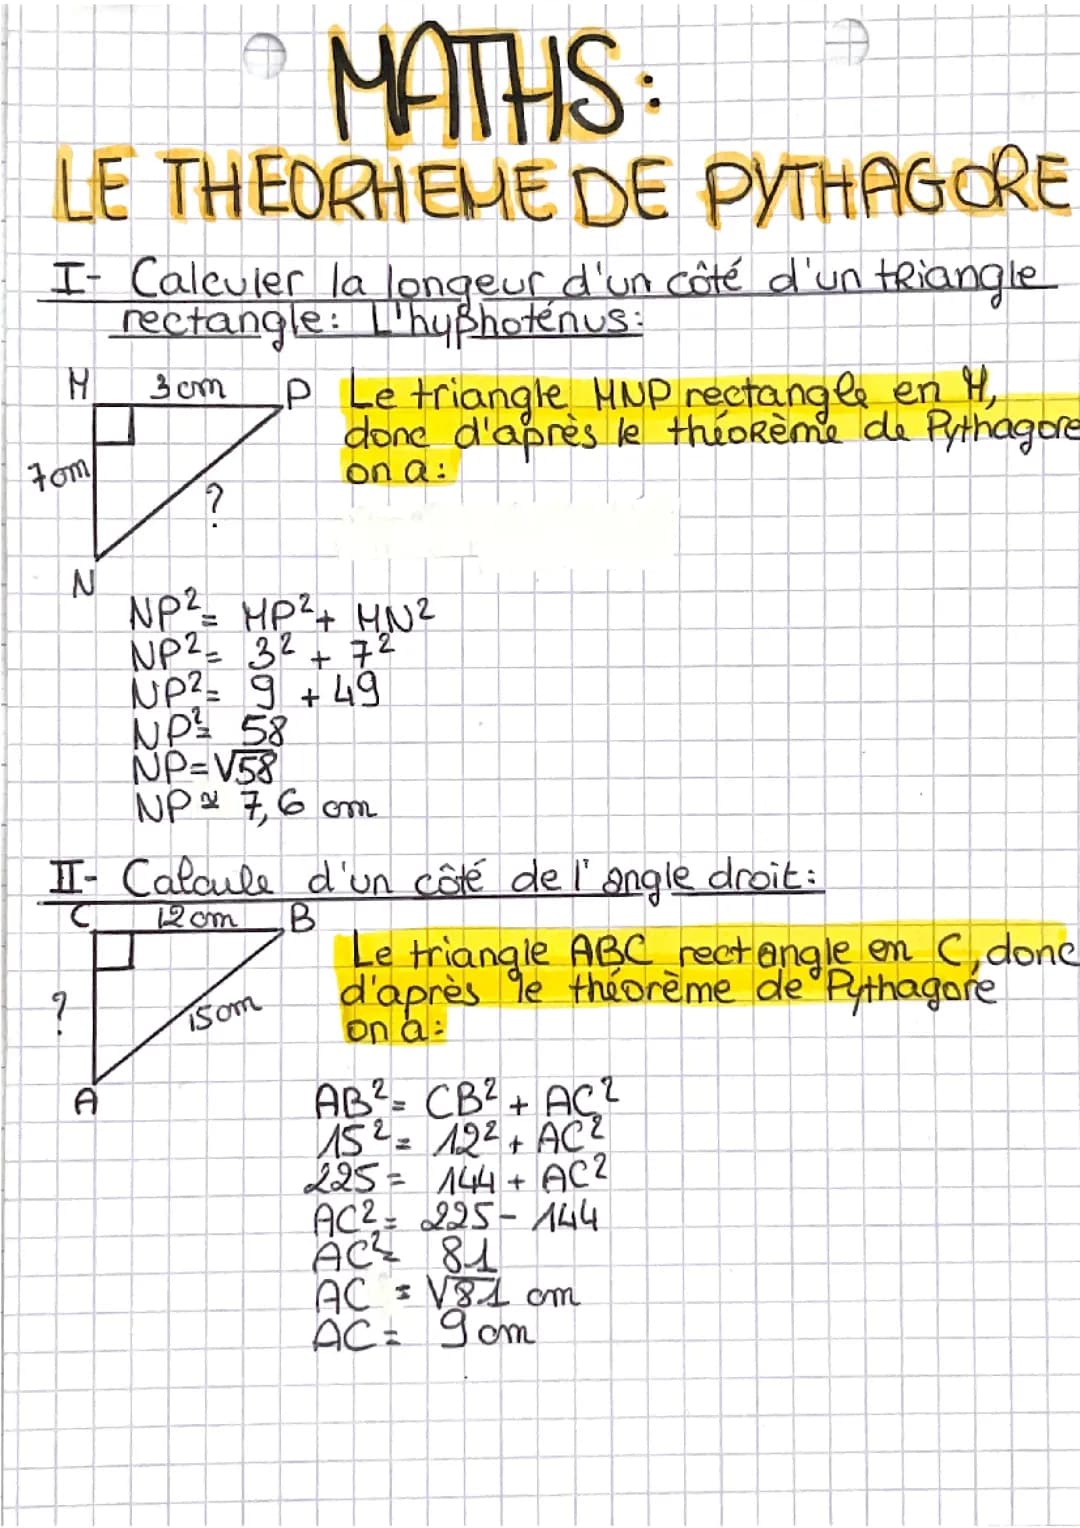 MATHS:
LE THEORHEME DE PYTHAGORE
I- Calculer la longeur d'un côté d'un triangle
rectangle: L'hyphoténus:
M 3cm P
7cm
?
N
Le triangle MNP rectangle en M,
donc d'après le théorème de Pythagore
on a:
NP²= MP²+ MN²
NP²= 3² + 7²
NP²= 9 + 49
NP²= 58
NP=√58
NP≈ 7,6 cm
II- Calcule d'un côté de l'angle droit:
C 12cm B
?
15cm
A
Le triangle ABC rectangle en C, donc
d'après le théorème de Pythagore
on a:
AB²= CB²+ AC²
15²= 12²+ AC²
225= 144+ AC²
AC²= 225- 144
AC²= 81
AC = √81 cm
AC= 9cm